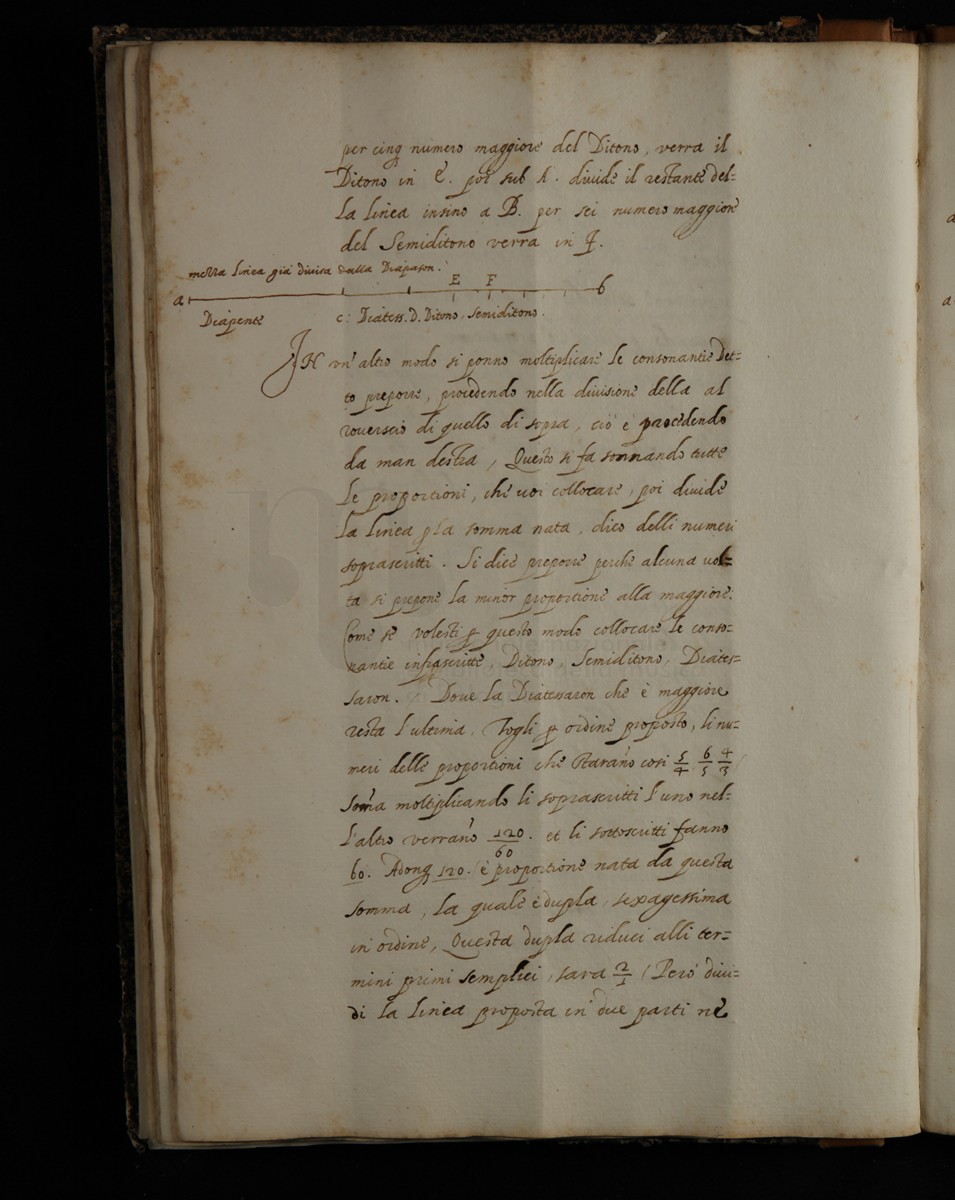 per cinq numero maggiore del Ditono, verra il
Ditono in E. poi sub h. divide il restante del=
la linea insino a B. per sei numero maggiore
del Semiditono verra in F.
meza linea già divisa dalla Diapason.
a E F b
Diapente c: Diatess. D. Ditono, Semiditono.
IN un' altro modo si ponno moltiplicare le consonantie det=
to preporre, procedendo nella divisione della al
roverscio di quello di sopra, ciò è procedendo
da man destra, Questo si fa sonnando tutte
le proportioni, che voi collocare, poi divide
la linea p la somma nata, dico delli numeri
soprascritti. Si dice preporre perche alcuna vol=
ta si prepone la minor proportione alla maggiore.
Come se volesti p questo modo collocare le conso=
nantie infrascritte, Ditono, Semiditono, Diates=
saron. Dove la Diatessaron che è maggiore
resta l'ultima. Togli p ordine proposto, li nu=
meri delle proportioni che starano cosi 5/4 6/5 4/3
Soma moltiplicando li soprascritti l'uno nel=
l'altro verrano 120/60. et li sottoscritti fanno
60. Adonq 120. è proportione nata da questa
somma, la quale è dupla, sexagessima
in ordine, Questa dupla riduci alli ter=
mini primi semplici, sara 2/1 Però divi=
di la linea proposta in due parti ne